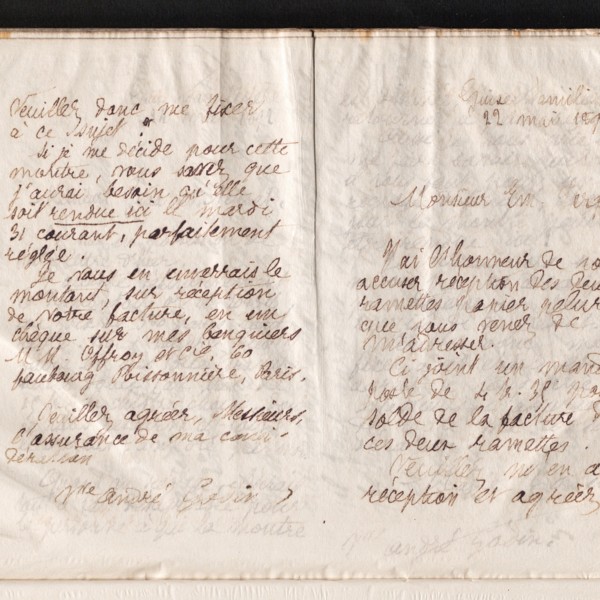 Veuillez donc me fixer
à ce sujet.
Si je me décide pour cette
montre, vous savez que
j'aurai besoin qu'elle
soit rendue ici le mardi
31 courant, parfaitement
réglée.
Je vous en enverrais le
montant, sur réception
de votre facture, en un
chèque sur mes banquiers
M.M. Offroy et Cie, 60
faubourg Poissonnière, Paris.
Veuillez agréer, Messieurs,
l'assurance de ma consi-
dération
Vve André Godin
Guise Famili
22 mai 18
Monsieur Em.
J'ai l'honneur de vo
accuser réception des deu
ramettes papier pelur
que vous venez de
m'adresser.
Ci joint un mand
poste de 4 fr. 35 po
solde de la facture d
ces deux ramettes.
Veuillez m'en a
réception et agréer